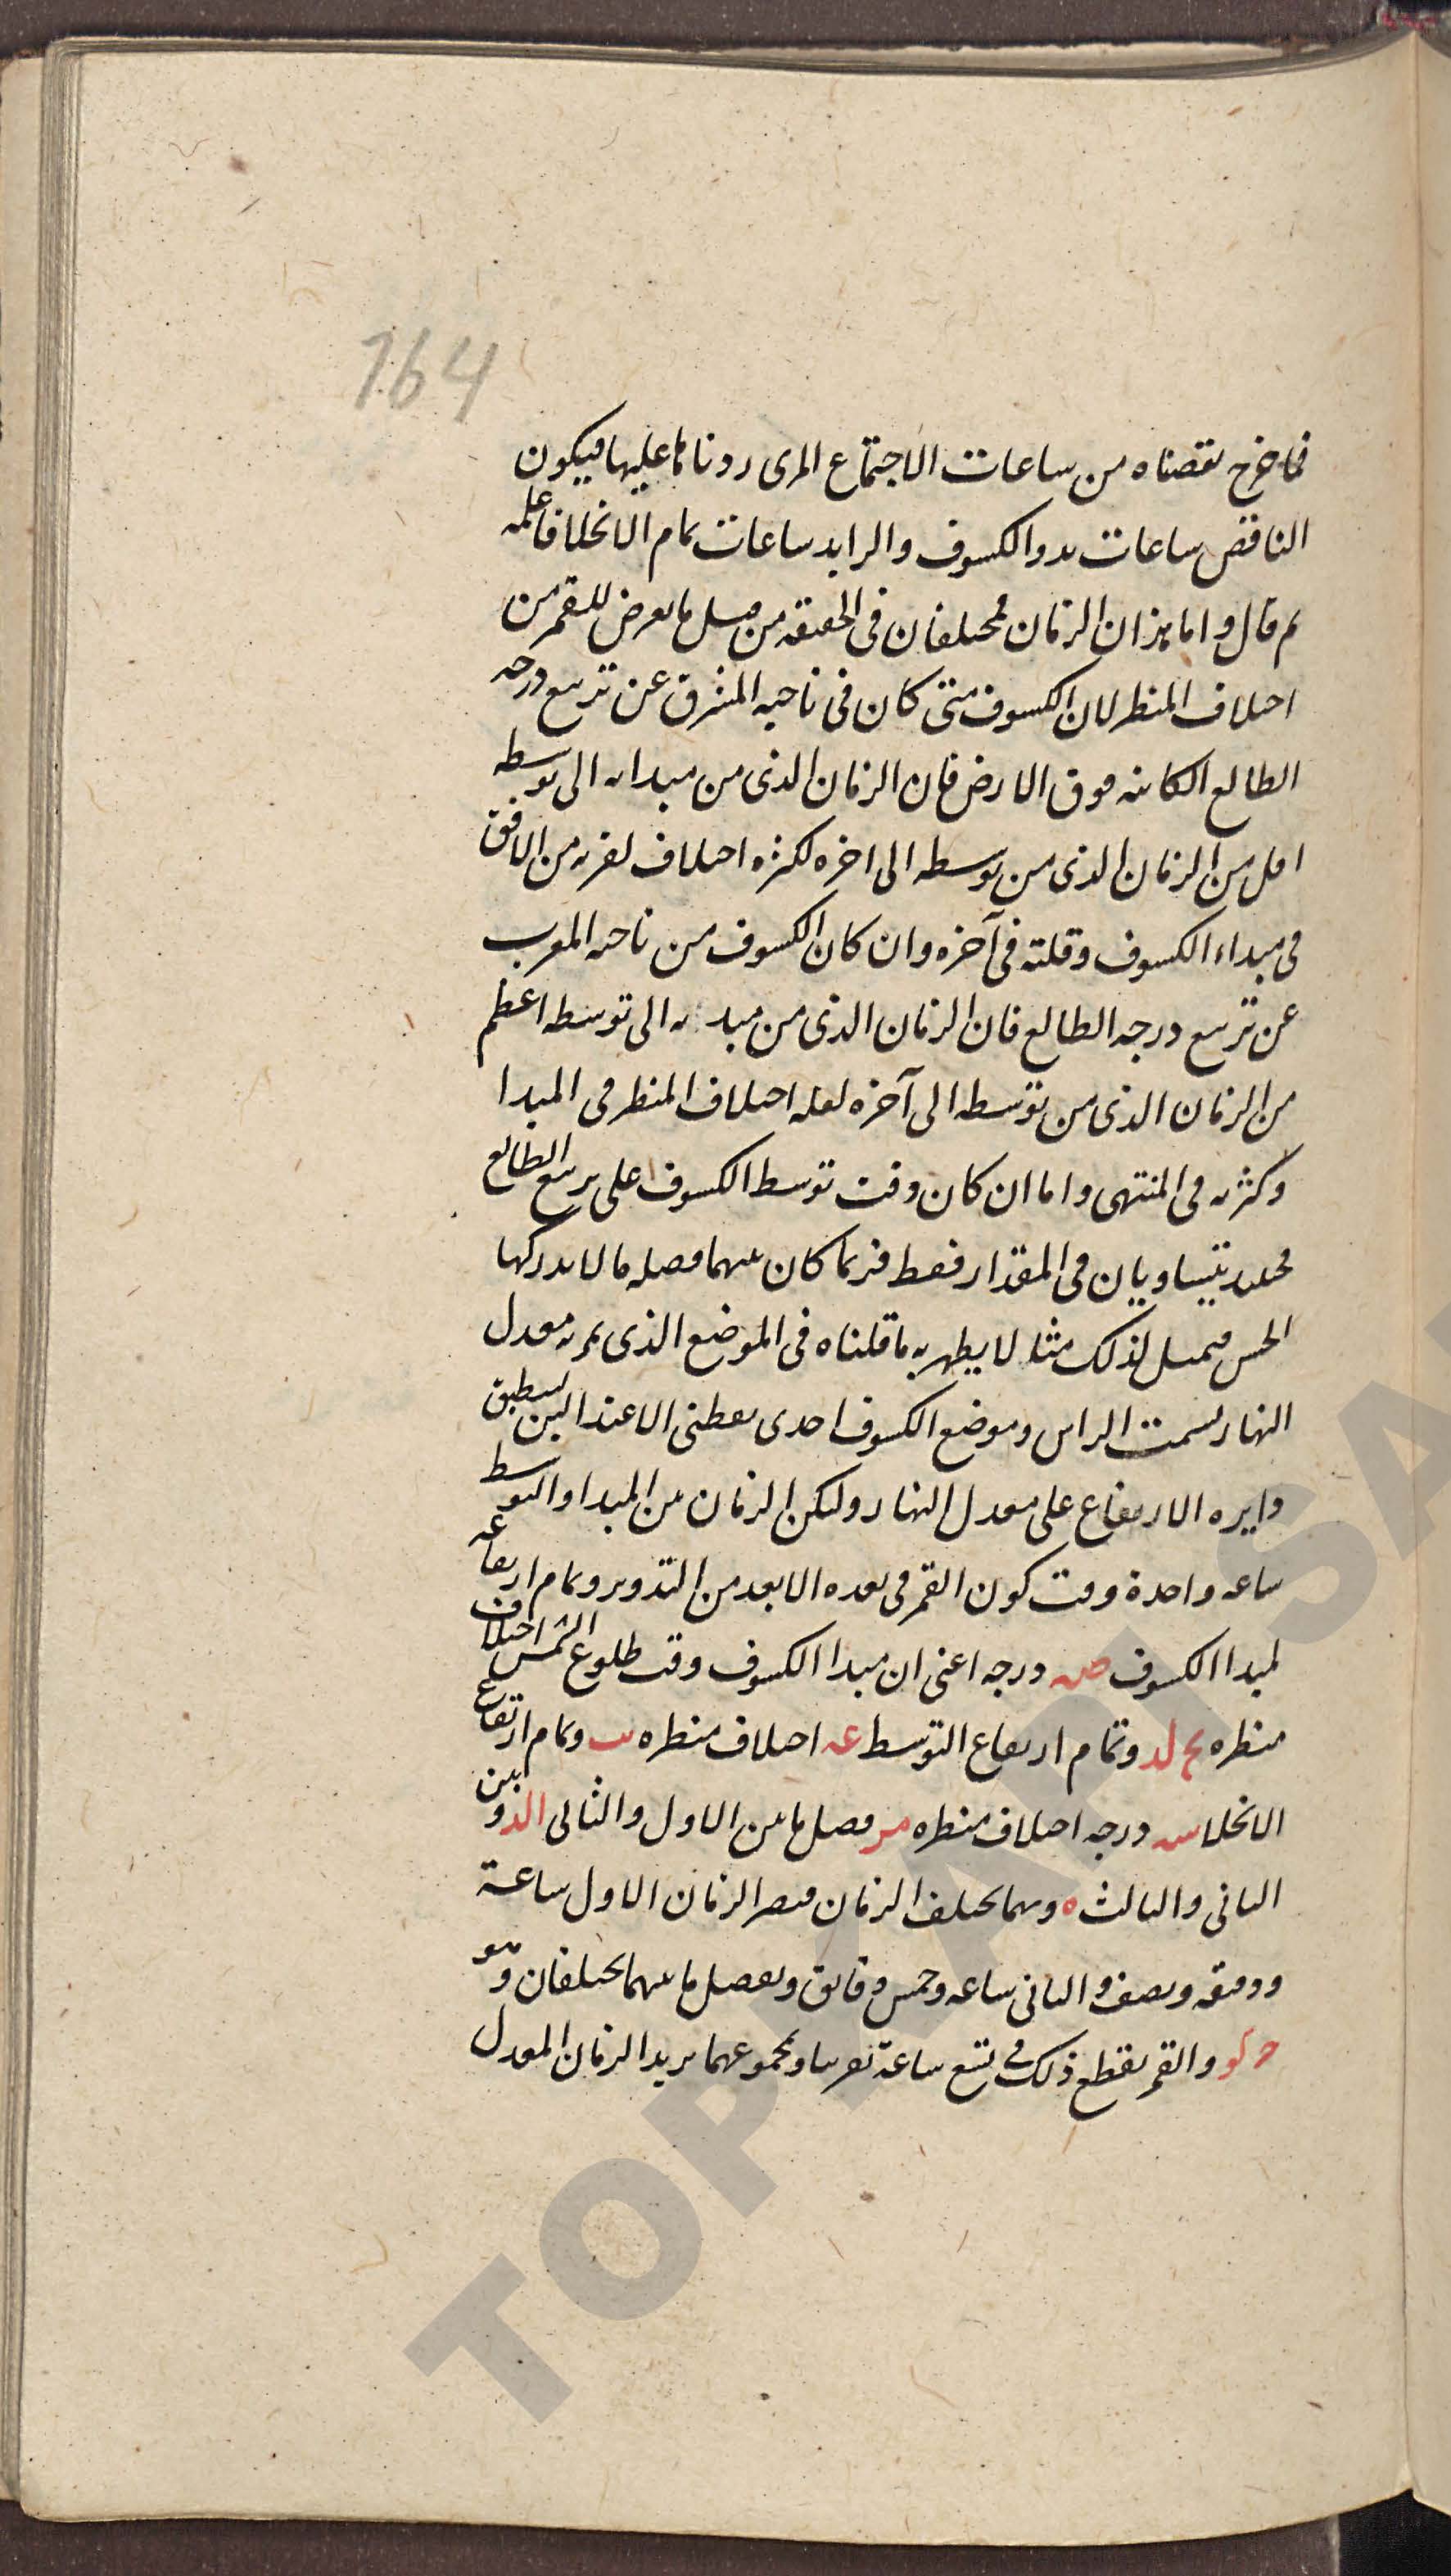 164
فما خرج نقصناه من ساعات الاجتماع المرى وزدناها عليها فيكون
الناقص ساعات بدو الكسوف والزايد ساعات تمام الانجلا فاعلمه
ثم قال واما هذان الزمان فمختلفان فى الحقيقه من قبل ما يعرض للقمر من
اختلاف المنظر لان الكسوف متى كان فى ناحيه المشرق عن تربيع درجه
الطالع الكاينه فوق الارض فان الزمان الذى من مبداه الى توسطه
اقل من الزمان الذى من توسطه الى اخره لكثره اختلاف لقربه من الافق
فى مبداء الكسوف وقلته فى آخره وان كان الكسوف من ناحيه المغرب
عن تربيع درجه الطالع فان الزمان الذى من مبد ه الى توسطه اعظم
من الزمان الذى من توسطه الى آخره لقله اختلاف المنظر فى المبدا
وكثرته فى المنتهى واما ان كان وقت توسط الكسوف على تربيع الطالع
يتساويان فى المقدار فقط فربما كان بينهما فضله ما لا يدركها
الحس فيمثل لذلك مثالا يظهر به ما قلناه فى الموضع الذى يمر به معدل
النهار بسمت الراس وموضع الكسوف احدى نقطتى الاعتدالين ينطبق
دايره الارتفاع على معدل النهار وليكن الزمان بين المبدا والتوسط
ساعه واحدة ووقت كون القمر فى بعده الابعد من التدوير وتمام ارتفاعه
لمبدا الكسوف ص درجه اعنى ان مبدا الكسوف وقت طلوع الشمس اختلاف
منظره نح لد وتمام ارتفاع التوسط عه اختلاف منظره نب وتمام ارتفاع
الانجلا س درجه اختلاف منظره مر فضل ما بين الاول والثانى الد وبين
الثانى والثالث ه وبهما يختلف الزمان فيصر الزمان الاول ساعة
ودقيقه ونصف والثانى ساعه وخمس دقايق وبفضل ما بينهما يختلفان وهو
ح كو والقمر يقطع ذلك فى تسع ساعة تقريبا ومجموعهما يزيد الزمان المعدل
TOPKAPI SA